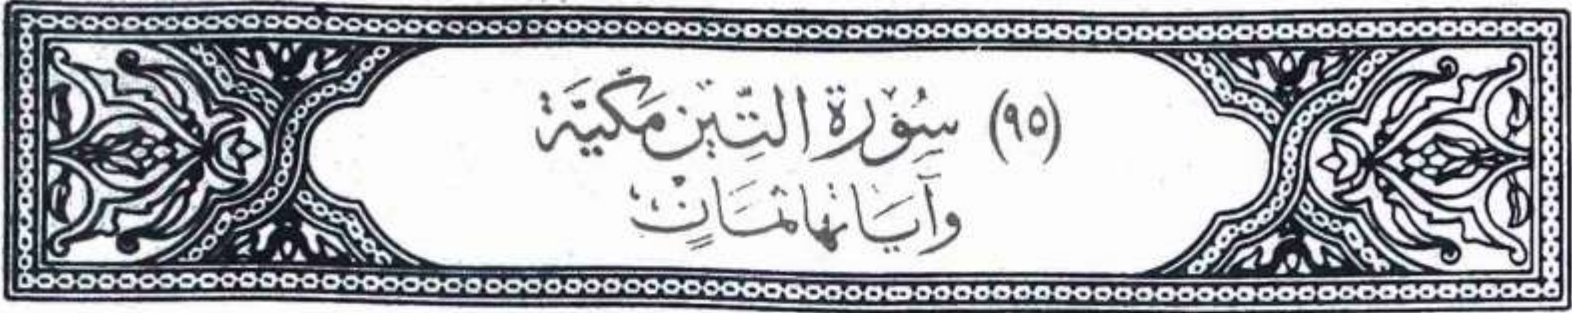 (٩٥) سُورَة التِّين مَكيَّة
وآيَاتها ثمَانٍ